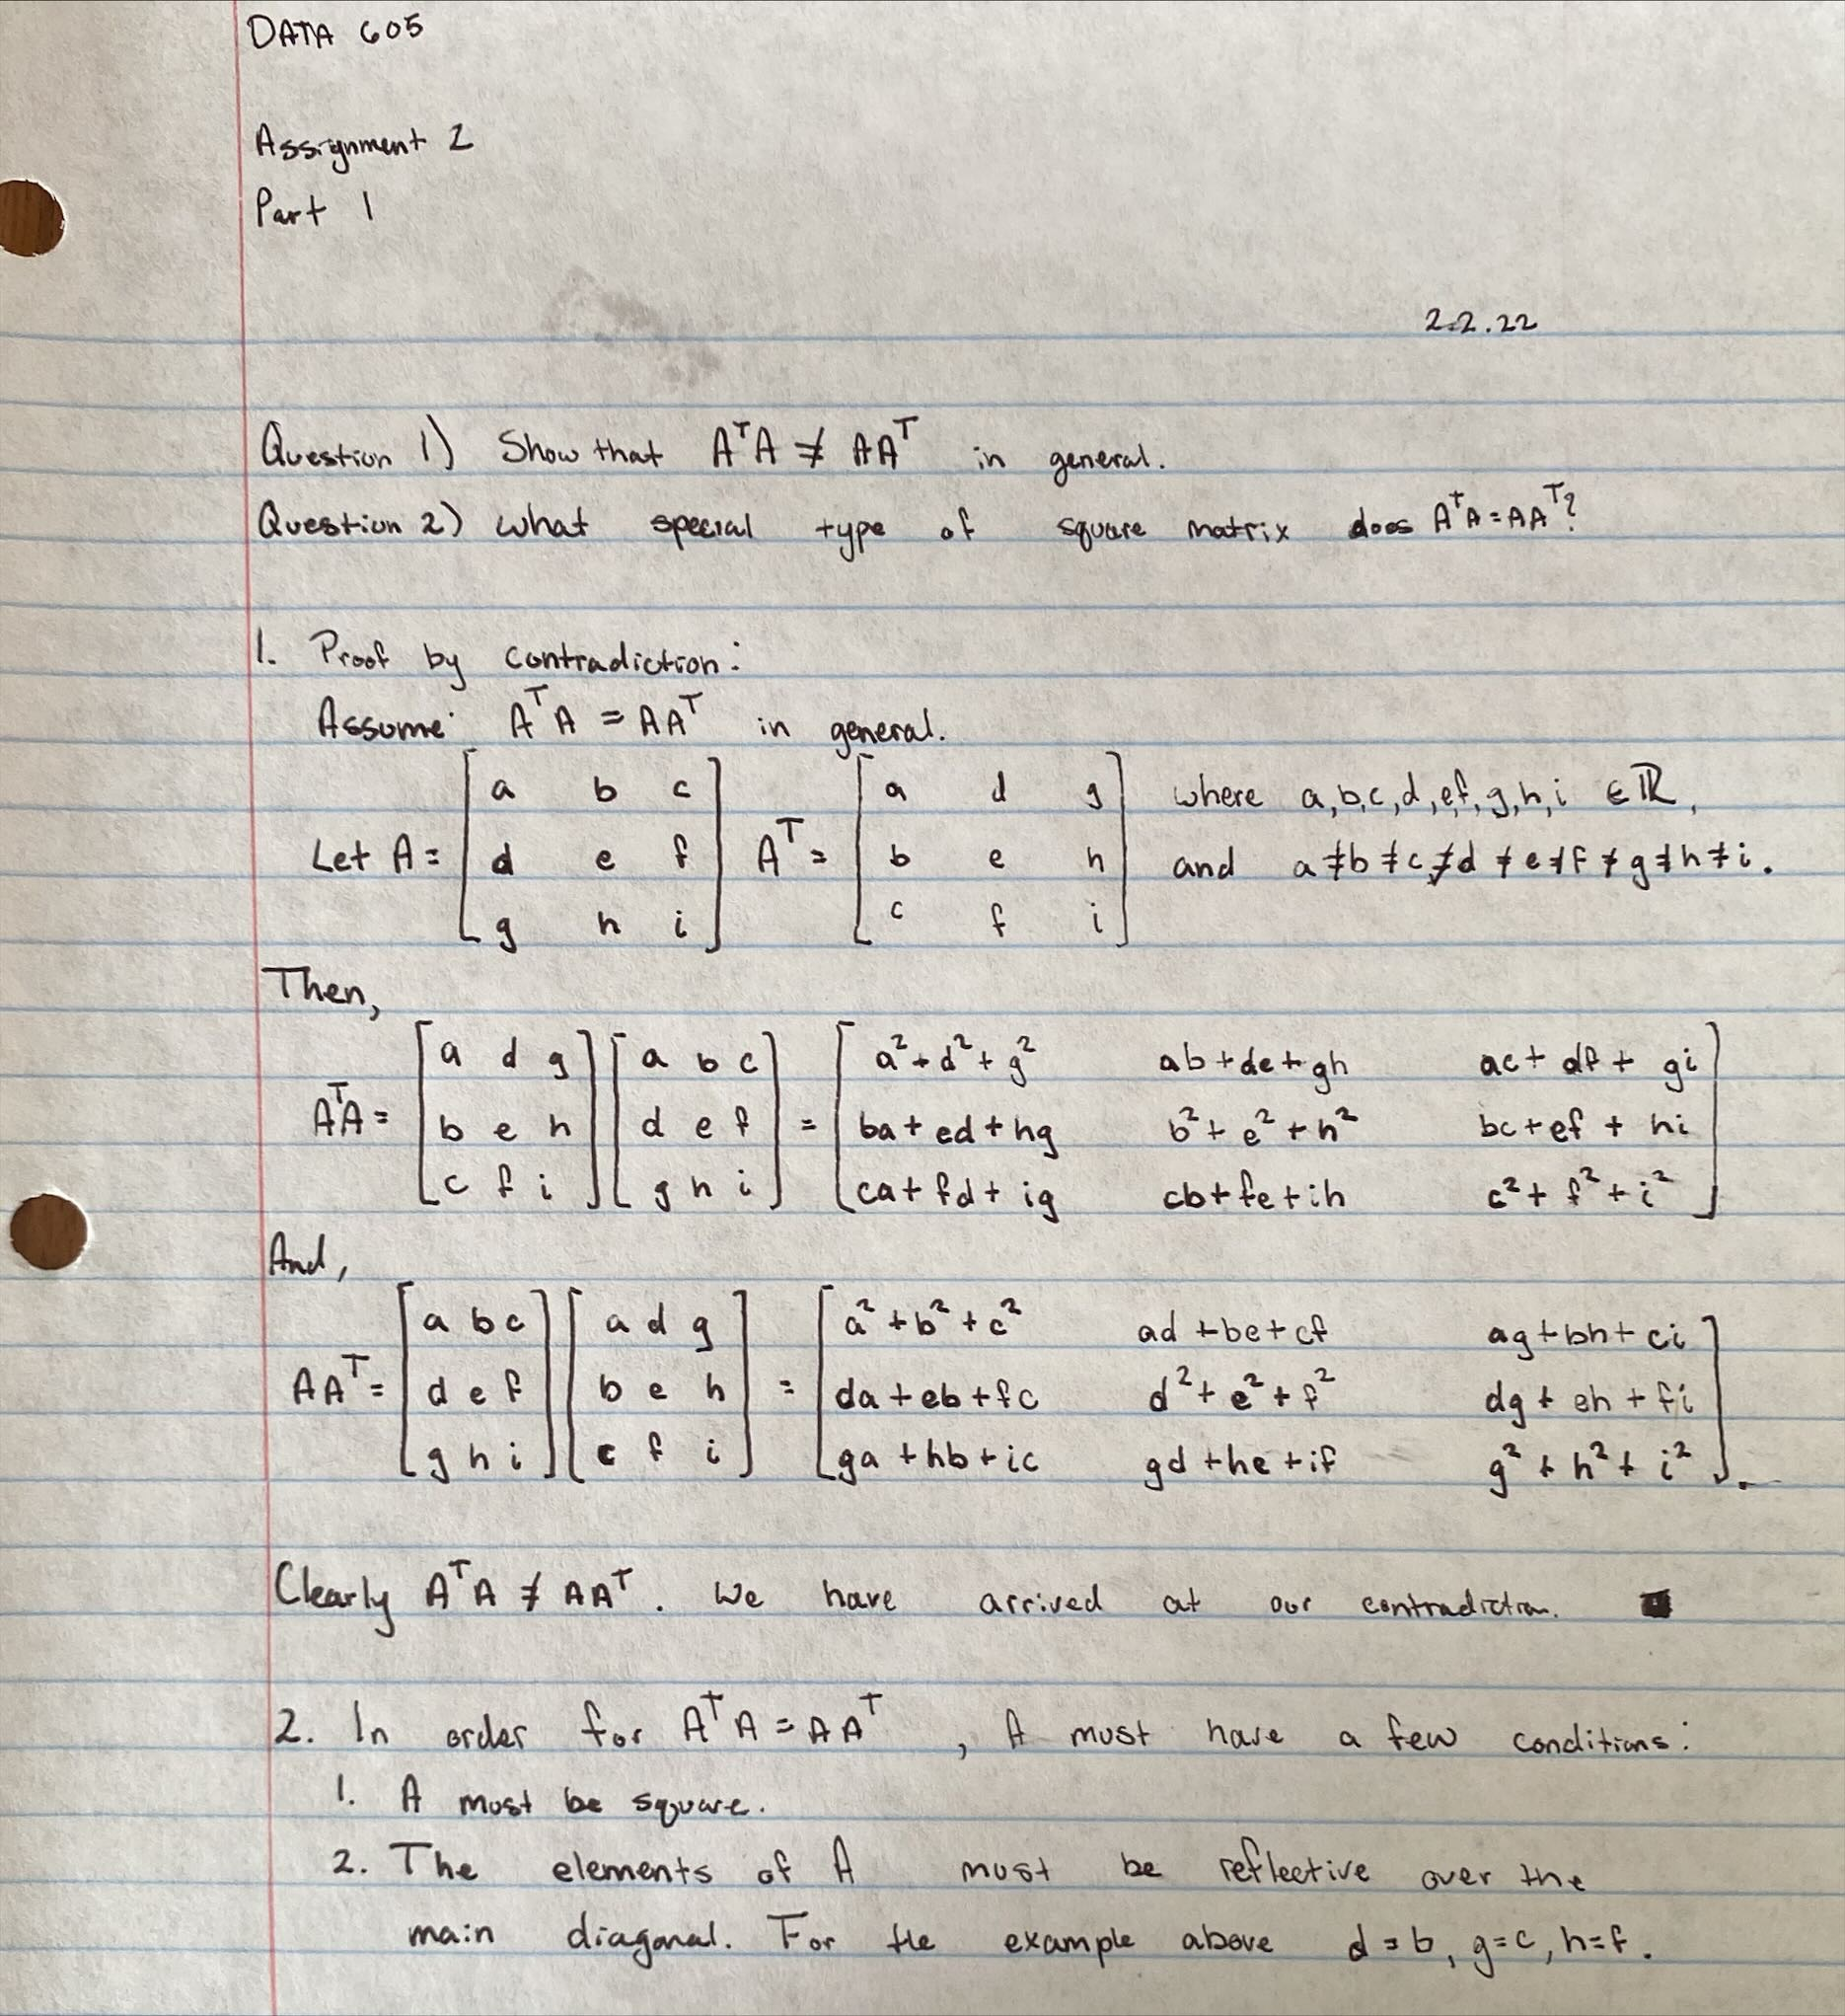 DATA 605
Assignment 2
Part 1
2.2.22
Question 1) Show that AᵀA ≠ AAᵀ in general.
Question 2) What special type of square matrix does AᵀA = AAᵀ?
1. Proof by contradiction:
Assume AᵀA = AAᵀ in general.
Let A = [a b c; d e f; g h i] Aᵀ = [a d g; b e h; c f i] where a,b,c,d,e,f,g,h,i ∈ ℝ, and a≠b≠c≠d≠e≠f≠g≠h≠i.
Then,
AᵀA = [a d g; b e h; c f i] [a b c; d e f; g h i] = [a²+d²+g² ab+de+gh ac+df+gi; ba+ed+hg b²+e²+h² bc+ef+hi; ca+fd+ig cb+fe+ih c²+f²+i²]
And,
AAᵀ = [a b c; d e f; g h i] [a d g; b e h; c f i] = [a²+b²+c² ad+be+cf ag+bh+ci; da+eb+fc d²+e²+f² dg+eh+fi; ga+hb+ic gd+he+if g²+h²+i²].
Clearly AᵀA ≠ AAᵀ. We have arrived at our contradiction. ■
2. In order for AᵀA = AAᵀ, A must have a few conditions:
1. A must be square.
2. The elements of A must be reflective over the
main diagonal. For the example above d=b, g=c, h=f.